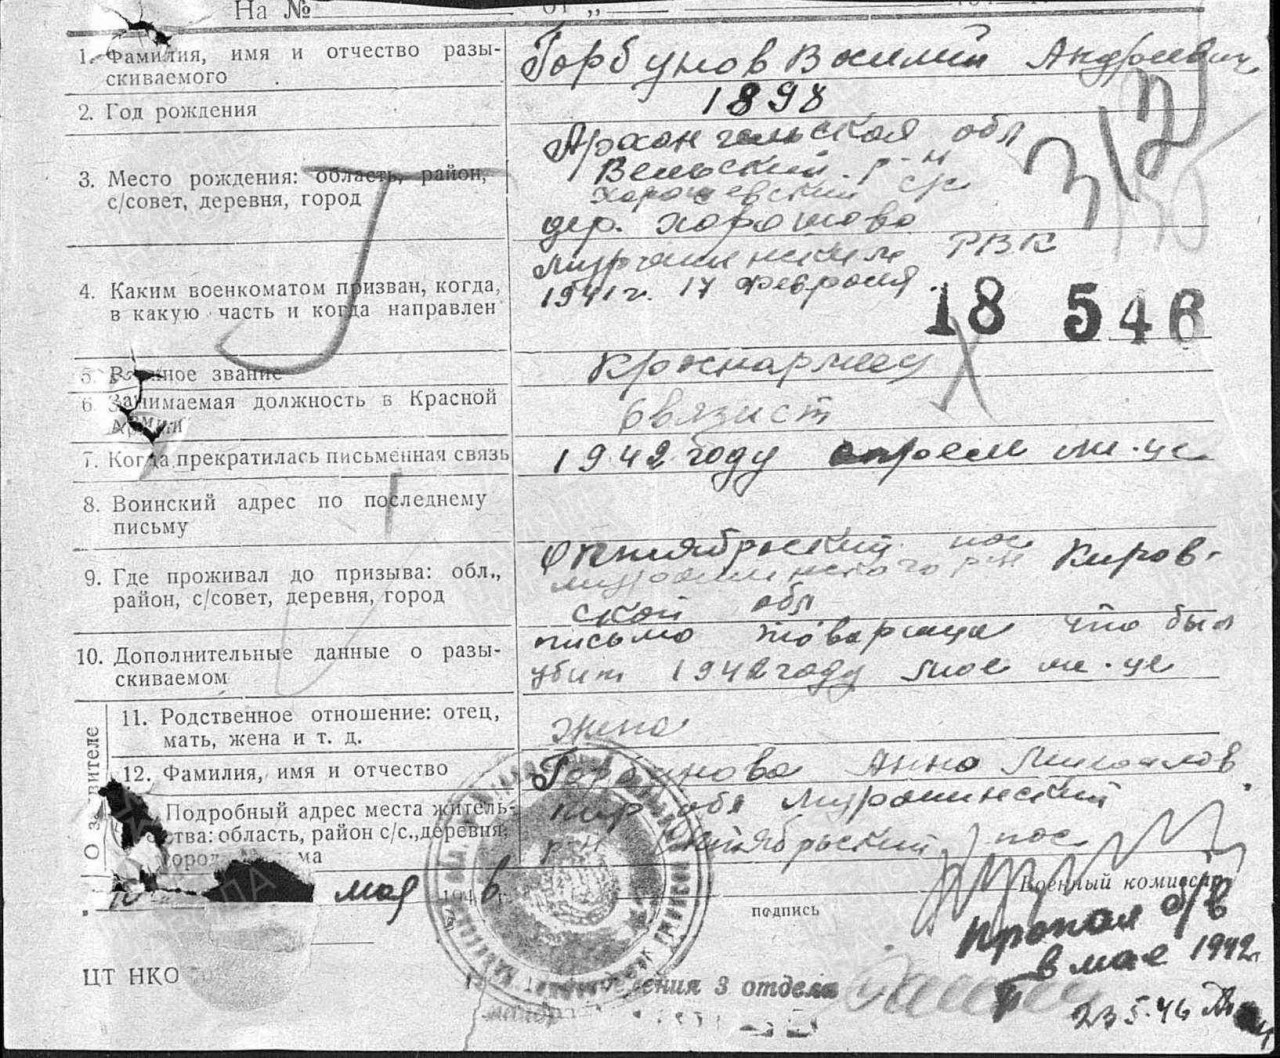 На №
1. Фамилия, имя и отчество разы-
скиваемого
Горбунов Василий Андреевич
2. Год рождения
1898
3. Место рождения: область, район,
с/совет, деревня, город
Архангельская обл
Вельский р-н
Хорошевский с/с
дер. Хорошово
3/2
4. Каким военкоматом призван, когда,
в какую часть и когда направлен
Мурашинским РВК
1941 г. 17 февраля.
18 546
5. Военное звание
Красноармеец
6. Занимаемая должность в Красной
Армии
Связист
7. Когда прекратилась письменная связь
1942 году апреле м-це
8. Воинский адрес по последнему
письму
9. Где проживал до призыва: обл.,
район, с/совет, деревня, город
Октябрьский пос
Мурашинского р-н Киров-
ской обл
10. Дополнительные данные о разы-
скиваемом
письмо товарища что был
убит 1942 году мае м-це
О заявителе
11. Родственное отношение: отец,
мать, жена и т. д.
жена
12. Фамилия, имя и отчество
Горбунова Анна Михайлов
Подробный адрес места житель-
ства: область, район с/с., деревня,
город
Кир обл Мурашинский
р-н Октябрьский пос.
мая 1946 г.
Военный комиссар
подпись
Пропал б/в
в мае 1942 г
23.5.46
ЦТ НКО
3 отдела
майор